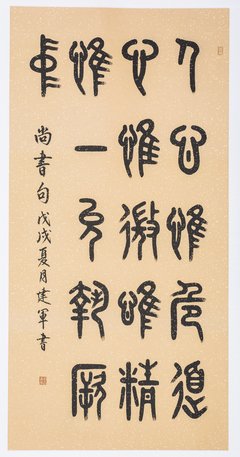 人心惟危道
心惟微惟精
惟一允執厥
中
尚書句戊戌夏月建軍書